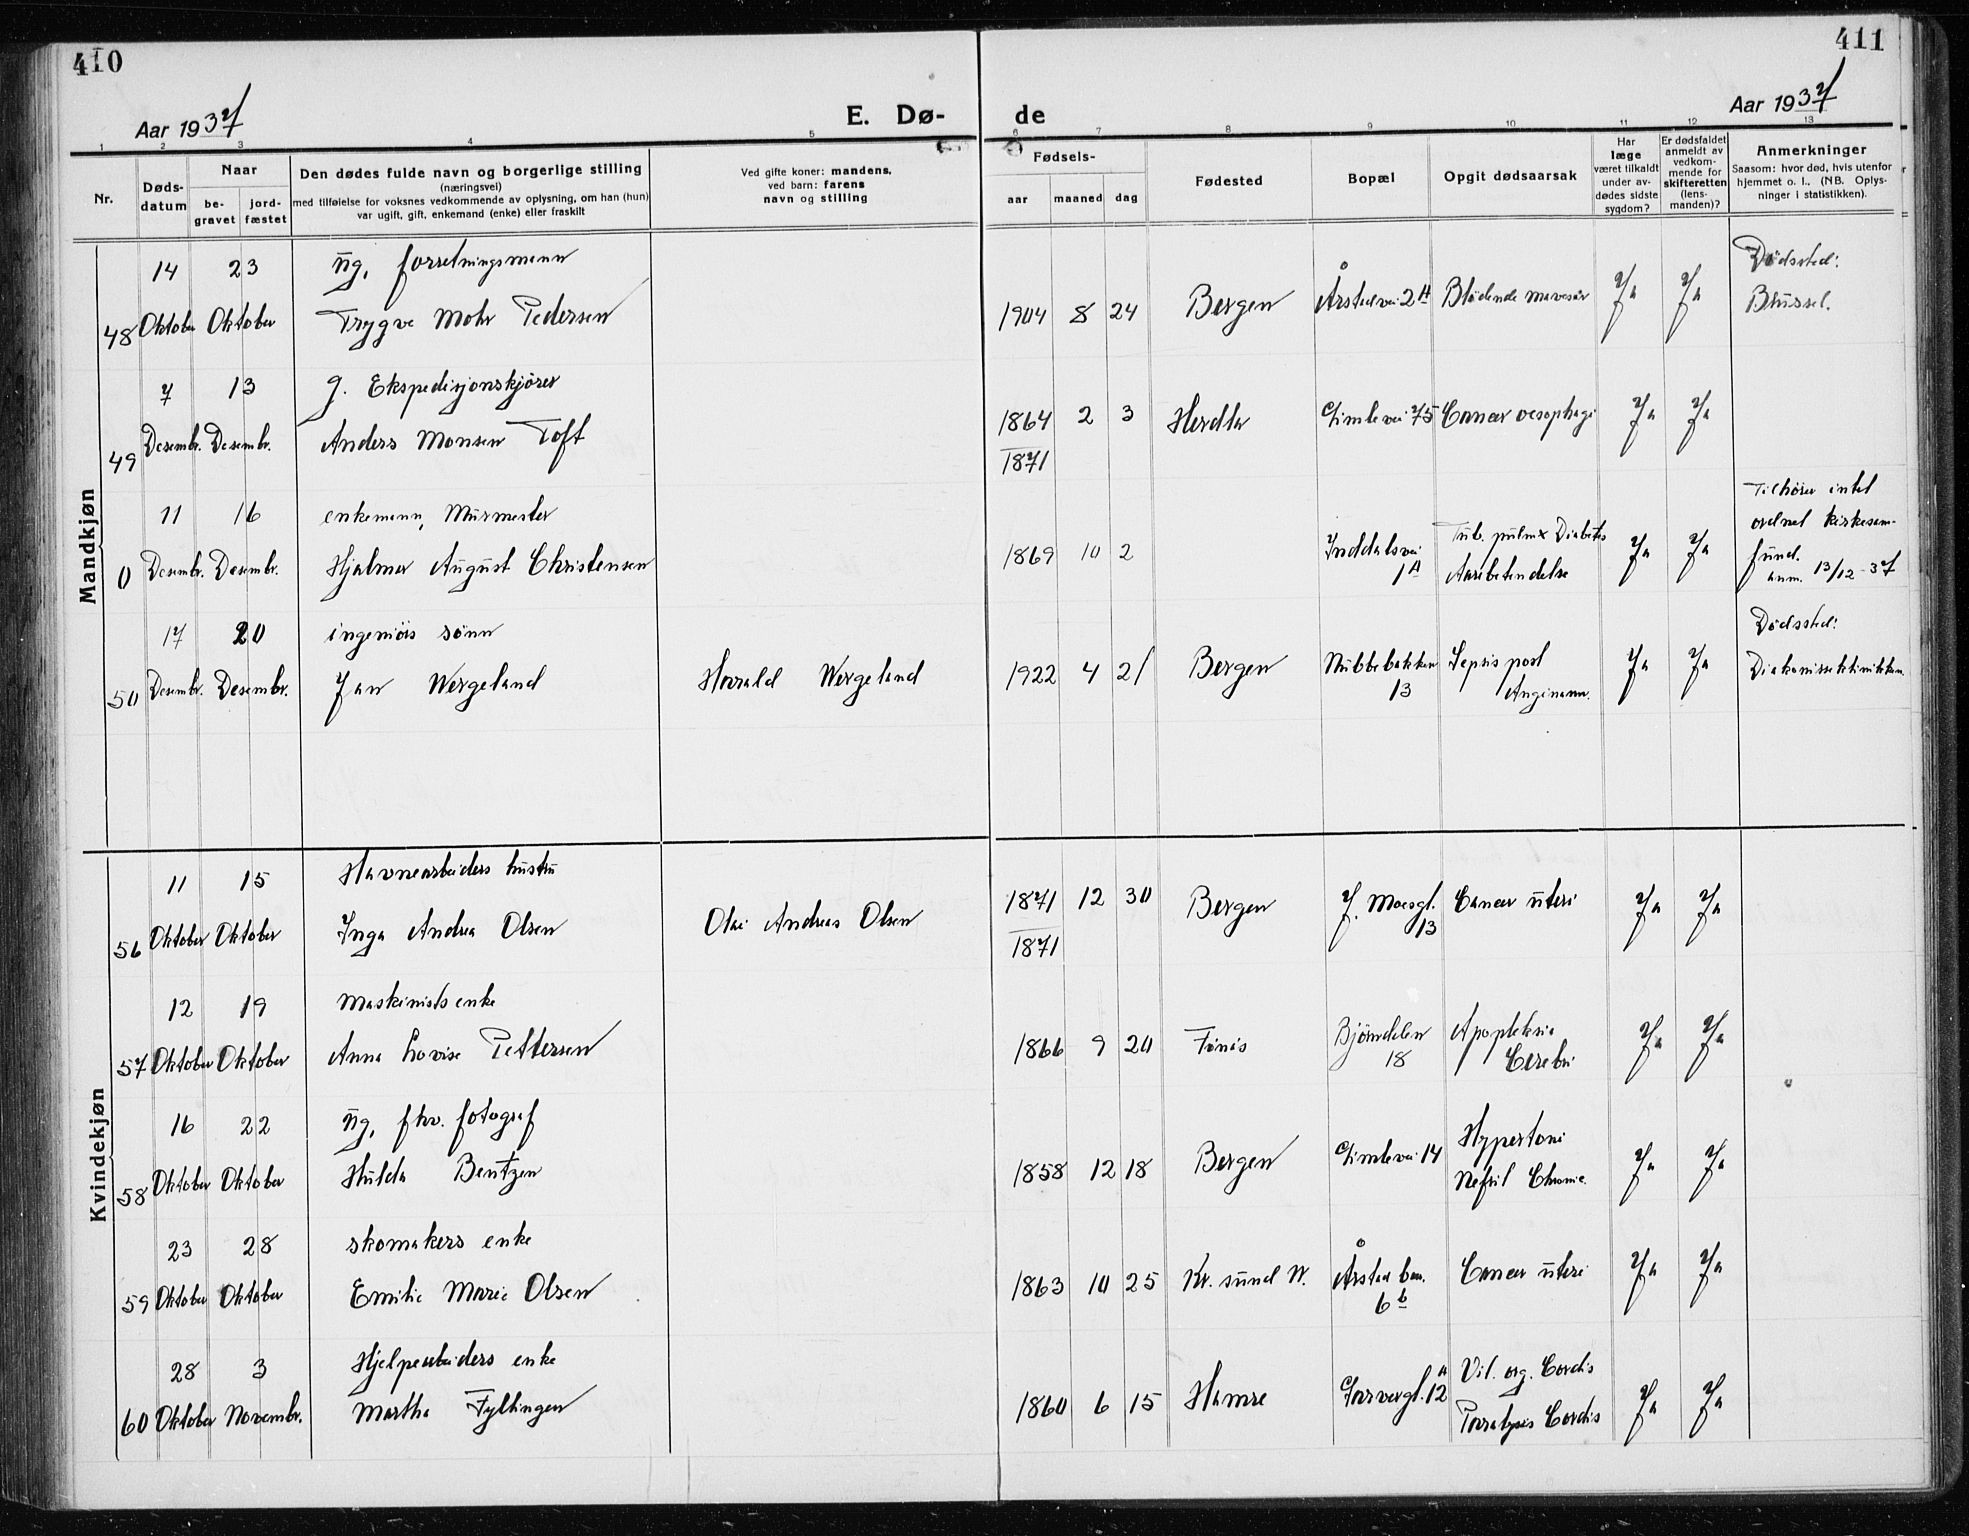 410
411
Aar 1937
E. Dø-
de
Aar 1937
1 2 3 4 5 6 7 8 9 10 11 12 13
Nr.
Døds-
datum
Naar
be-
gravet
jord-
fæstet
Den dødes fulde navn og borgerlige stilling
(næringsvei)
med tilføielse for voksnes vedkommende av oplysning, om han (hun)
var ugift, gift, enkemand (enke) eller fraskilt
Ved gifte koner: mandens,
ved barn: farens
navn og stilling
Fødsels-
aar
maaned
dag
Fødested
Bopæl
Opgit dødsaarsak
Har
læge
været tilkaldt
under av-
dødes sidste
sygdom?
Er dødsfaldet
anmeldt av
vedkom-
mende for
skifteretten
(lens-
manden)?
Anmerkninger
Saasom: hvor død, hvis utenfor
hjemmet o. l., (NB. Oplys-
ninger i statistikken).
Mandkjøn
14 23 ug. forretningsmann Dødssted:
48 Oktober Oktober Trygve Mohr Pedersen 1904 8 24 Bergen Årstadvei 2A Blødende mavesår Ja Ja Brussel.
7 13 g. Ekspedisjonskjører
49 Desembr. Desembr. Anders Monsen Toft 1864 2 3 Herdla Gimlevei 75 Cancer oesophagi Ja Ja
1871
11 16 enkemann, Murmester Tub. pulm x Diabetes Tilhører intet
ordnet kirkesam-
0 Desembr. Desembr. Hjalmar August Christensen 1869 10 2 Inddalsvei
1A Aarebetendelse Ja Ja fund.
anm. 13/12-37
17 20 ingeniørs sønn Dødssted:
50 Desembr. Desembr. Jan Wergeland Harald Wergeland 1922 4 21 Bergen Nubbebakken
13 Sepsis post
Anginam. Ja Ja Diakonisseklinikken
Kvindekjøn
11 15 Havnearbeiders hustru
56 Oktober Oktober Inga Andrea Olsen Olai Andreas Olsen 1871 12 30 Bergen J. Moesgt.
13 Cancer uteri Ja Ja
1871
12 19 Maskinists enke
57 Oktober Oktober Anna Lovise Pettersen 1866 9 20 Fanøs Bjørndalen
18 Apopleksia
Cerebri Ja Ja
16 22 ug. fhv. fotograf
58 Oktober Oktober Hulda Bentzen 1858 12 18 Bergen Gimlevei 14 Hypertoni
Nefrit Chronic. Ja Ja
23 28 skomakers enke
59 Oktober Oktober Emilie Marie Olsen 1863 10 25 Kr. sund N. Årstad
6b Cancer uteri Ja Ja
28 3 Hjelpearbeiders enke
60 Oktober Novembr. Martha Fyllingen 1860 6 15 Hamre 12A Vit. org. Cordis
Paralysis Cordis Ja Ja